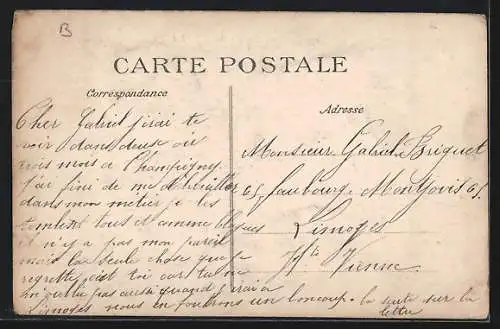 B
CARTE POSTALE
Correspondance
Adresse
Cher Gabriel j'irai te
voir dans deux ou
trois mois a Champigney
j'ai fini de me
dans mon metier je les
tous et comme
il n'y a pas mon pareil
mais la seule chose que je
regrette c'est toi car tu ne
pas aussi quand j'irai a
Limoges nous en foutrons un boncoup. la suite sur la
lettre
Monsieur Gabriel Briquet
65 faubourg Montjovis 65
Limoges
Hte Vienne